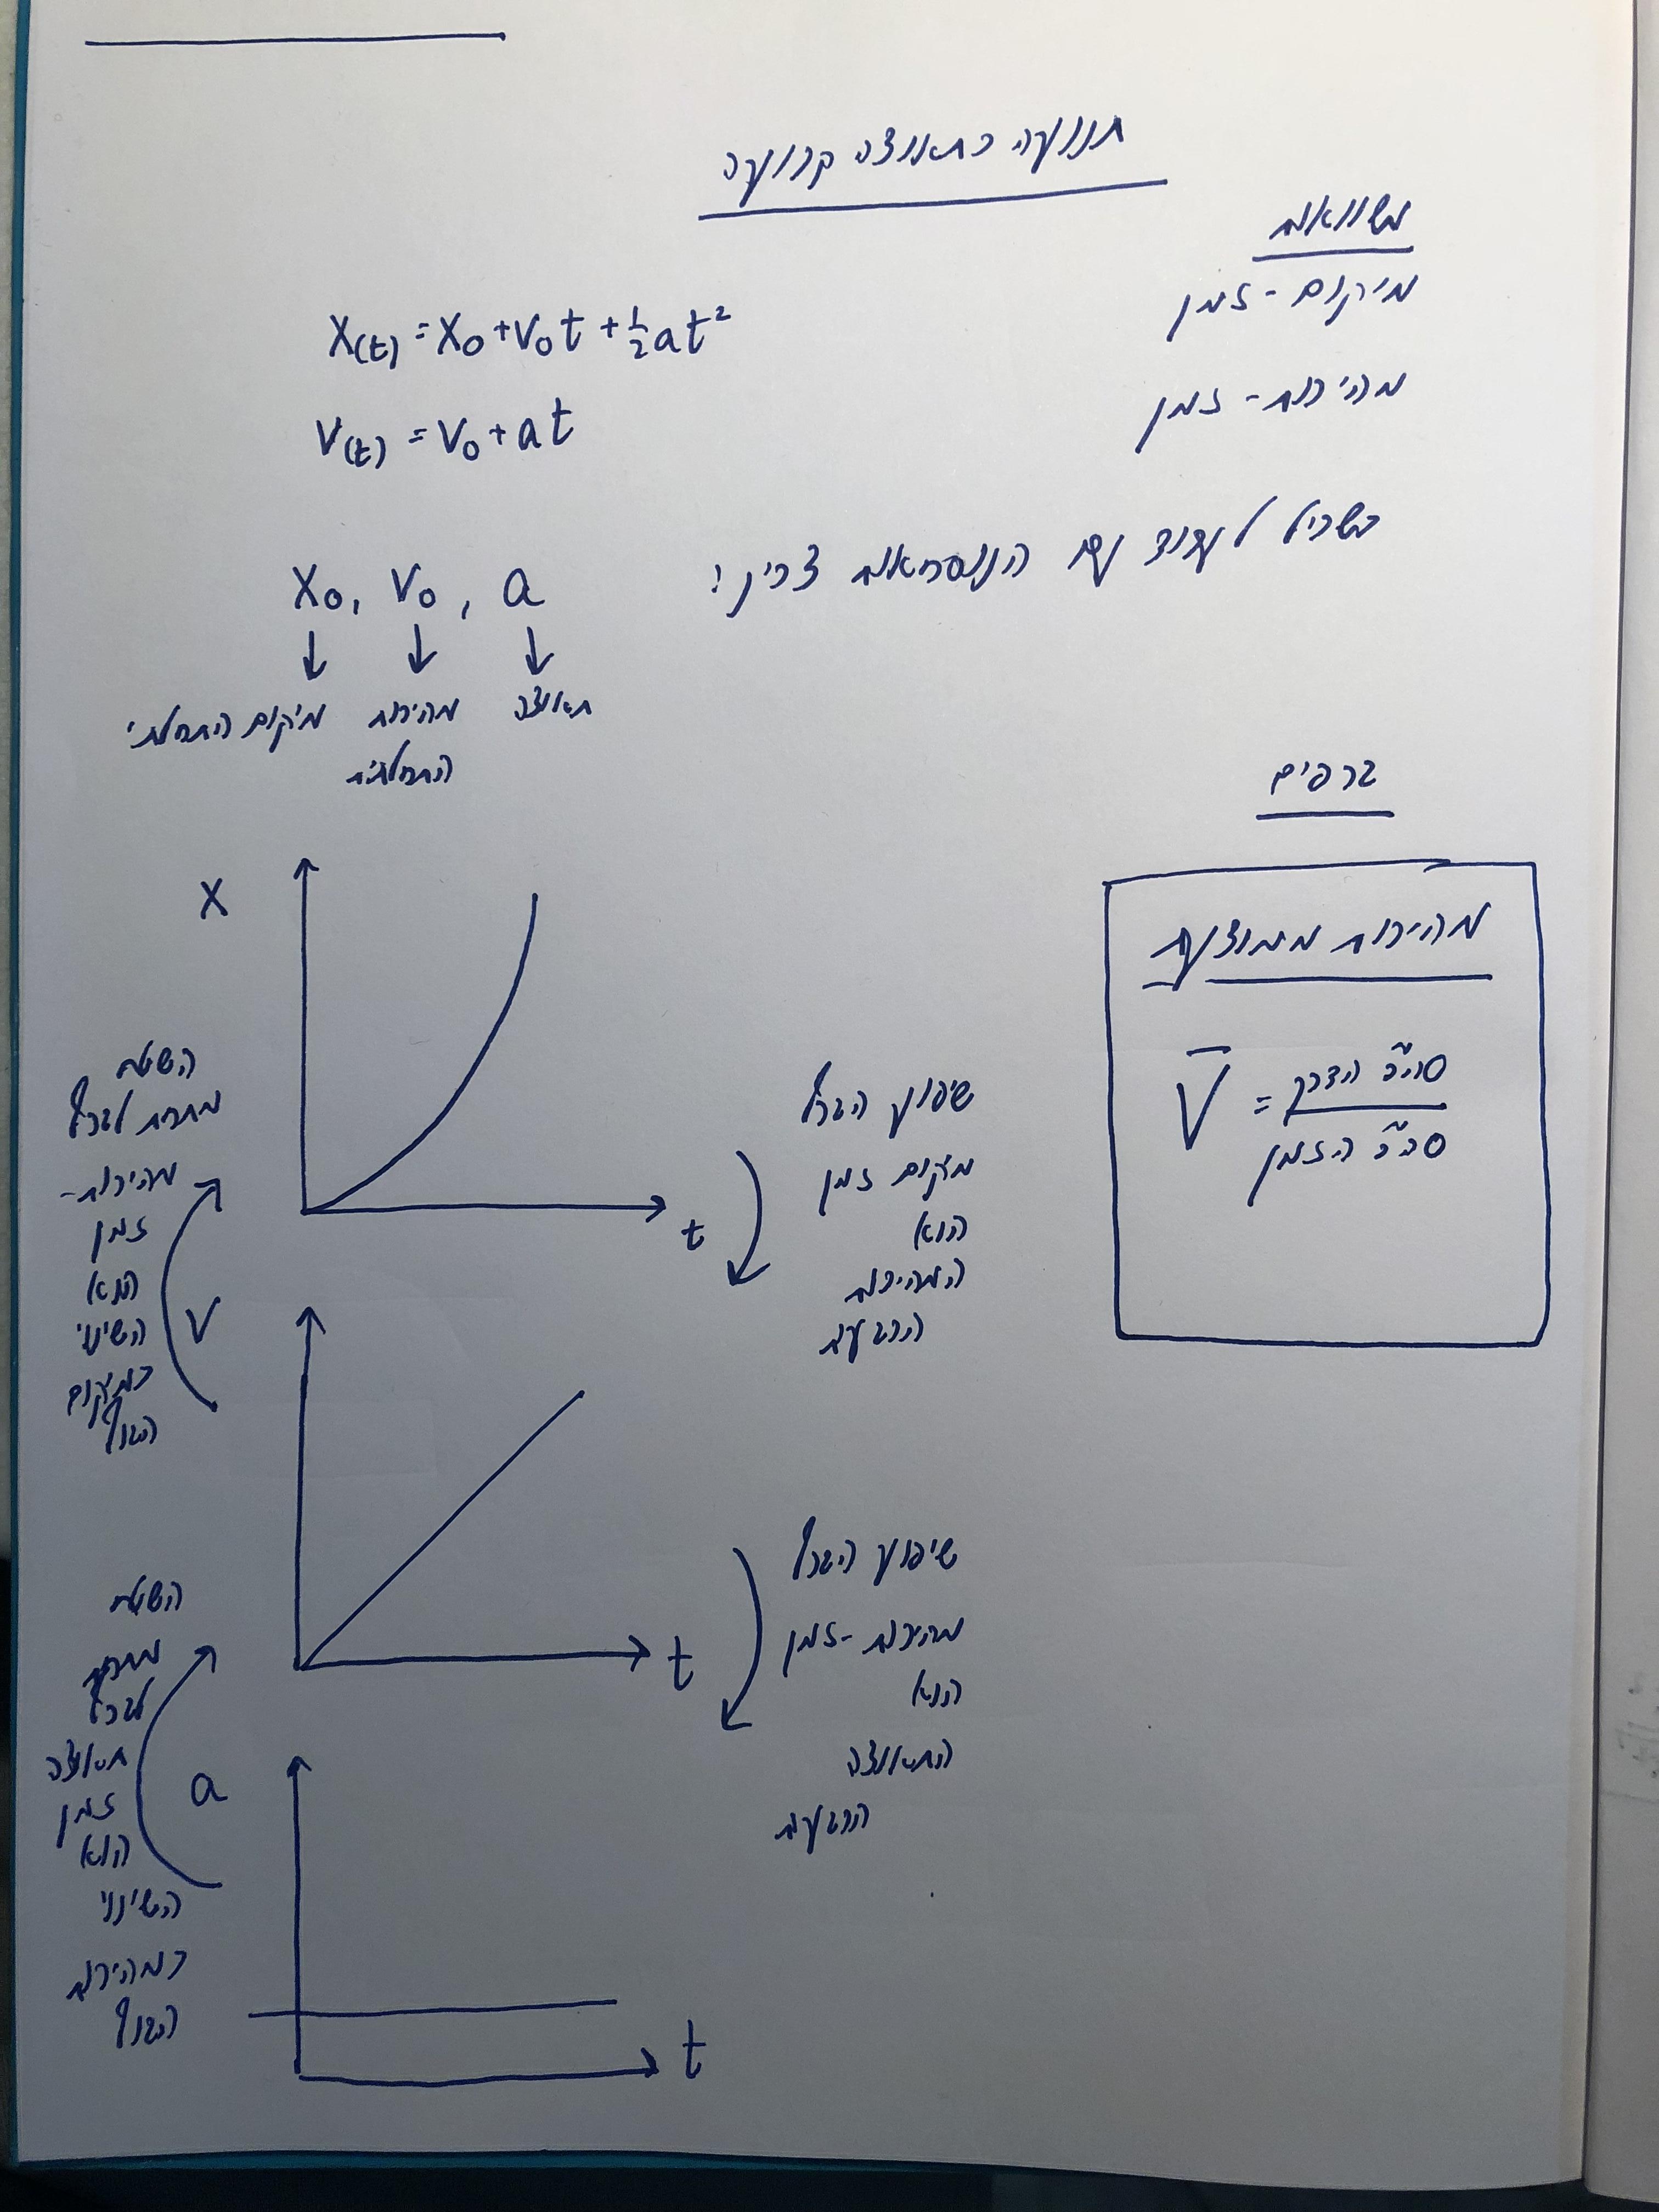 תנועה בתאוצה קבועה
משוואות
מיקום - זמן
x(t) = x₀ + v₀t + ½at²
מהירות - זמן
v(t) = v₀ + at
בשביל לעבוד עם הנוסחאות צריך:
x₀, v₀, a
↓ ↓ ↓
תאוצה
מהירות
התחלתית
מיקום התחלתי
גרפים
מהירות ממוצעת
V̄ = סה"כ הדרך
סה"כ הזמן
x
t
שיפוע הגרף
מיקום זמן
הוא
המהירות
הרגעית
השטח
מתחת לגרף
מהירות-
זמן
הוא
השינוי
במיקום
הגוף
v
t
שיפוע הגרף
מהירות-זמן
הוא
התאוצה
הרגעית
השטח
מתחת
לגרף
תאוצה
זמן
הוא
השינוי
במהירות
הגוף
a
t